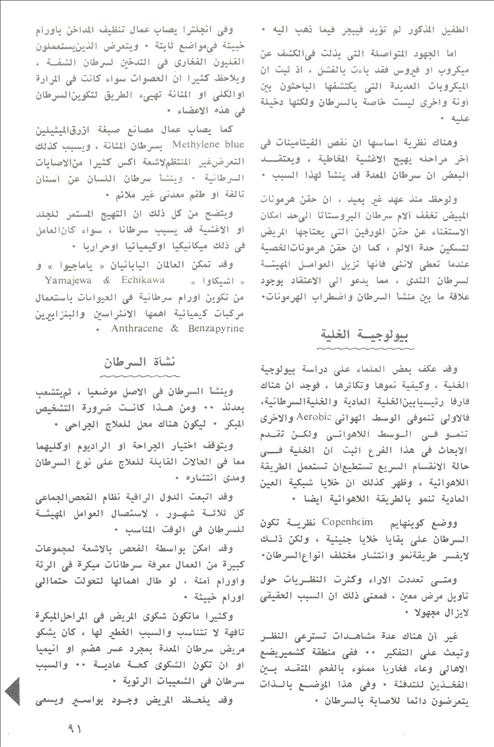 الطفيل المذكور لم تؤيد فيبجر فيما ذهب اليه ٠
اما الجهود المتواصلة التى بذلت فى الكشف عن
ميكروب او فيروس فقد باءت بالفشل ، اذ ثبت ان
الميكروبات العديدة التى يكتشفها الباحثون بين
آونة واخرى ليست خاصة بالسرطان ولكنها دخيلة
عليه ٠
وهناك نظرية اساسها ان نقص الفيتامينات فى
آخر مراحله يهيج الاغشية المخاطية ، ويعتقــد
البعض ان سرطان المعدة قد ينشأ لهذا السبب ٠
ولوحظ منذ عهد غير بعيد ، ان حقن هرمونات
المبيض تخفف آلام سرطان البروستاتا الى حد امكان
الاستغناء عن حقن المورفين التى يحتاجها المريض
لتسكين حدة الالم ، كما ان حقن هرمونات الخصية
عندما تعطى لأنثى فانها تزيل العوامـل المهيئـة
لسرطان الثدى ، مما يدعو الى الاعتقاد بوجود
علاقة ما بين منشأ السرطان واضطراب الهرمونات٠
بيولوجيـة الخلية
وقد عكف بعض العلماء على دراسة بيولوجية
الخلية ، وكيفية نموها وتكاثرها ، فوجد ان هناك
فارقا رئيسيا بين الخلية العادية والخلية السرطانية،
فالاولى تنمو فى الوسط الهوائى Aerobic والاخرى
تنمـو فـى الـوسط اللاهوائـى ولكـن تقـدم
الابحاث فى هذا الفرع اثبت ان الخلية فـــى
حالة الانقسام السريع تستطيع ان تستعمل الطريقة
اللاهوائية ، وظهر كذلك ان خلايا شبكية العين
العادية تنمو بالطريقة اللاهوائية ايضا ٠
ووضع كوبنهايم Copenheim نظريـة تكون
السرطان على بقايا خلايا جنينية ، ولكن ذلــك
لايفسر طريقة نمو وانتشار مختلف انواع السرطان٠
ومتـى تعددت الاراء وكثرت النظـريات حول
تأويل مرض معين ، فمعنى ذلك ان السبب الحقيقى
لايزال مجهولا ٠
غير أن هناك عدة مشاهـدات تسترعى النظـر
وتبعث على التفكير ٠٠ ففى منطقة كشمير يضع
الاهالى وعاء فخاريا مملوء بالفحم المتقـد بـين
الفخـذين للتدفئة ٠ وفى هذا الموضـع بالـذات
يتعرضون دائما للاصابة بالسرطان ٠
وفى انجلترا يصاب عمال تنظيف المداخن باورام
خبيثة فى مواضع ثابتة ٠ ويتعرض الذين يستعملون
الغليون الفخارى فى التدخين لسرطان الشفـة ،
ويلاحظ كثيرا ان الحصوات سواء كانت فى المرارة
او الكلى او المثانة تهيىء الطريق لتكوين السرطان
فى هذه الاعضاء ٠
كما يصاب عمال مصانع صبغة ازرق الميثيلين
Methylene blue بسرطان المثانة ، ويسبب كذلك
التعرض غير المنتظم لاشعة اكس كثيرا من الاصابات
السرطانية ٠ وينشأ سرطان اللسان عن اسنان
تالفة او طقم معدنى غير ملائم ٠
ويتضح من كل ذلك ان التهيج المستمر للجلد
او الاغشية قد يسبب سرطانا ، سواء كان العامل
فى ذلك ميكانيكيا او كيميائيا او حراريا ٠
وقد تمكن العالمان اليابانيان « ياماجيوا » و
« اشيكاوا » Yamajewa & Echikawa
من تكوين اورام سرطانية فى الحيوانات باستعمال
مركبات كيميائية اهمها الانثراسين والبنزابيرين
Anthracene & Benzapyrine ٠
نشأة السرطان
وينشأ السرطان فى الاصل موضعيا ، ثم يتشعب
بعدئذ ٠٠ ومن هـذا كانـت ضرورة التشخيص
المبكر ٠ ليكون هناك محل للعلاج الجراحى ٠
ويتوقف اختيار الجراحة او الراديوم او كليهما
معا فى الحالات القابلة للعلاج على نوع السرطان
ومدى انتشاره ٠
وقد اتبعت الدول الراقية نظام الفحص الجماعى
كل ثلاثـة شهـور ، لاستئصال العوامل المهيئـة
للسرطان فى الوقت المناسب ٠
وقد امكن بواسطة الفحص بالاشعة لمجموعات
كبيرة من العمال معرفة سرطانات مبكرة فى الرئة
واورام آمنة ، لو طال اهمالها لتحولت حتما الى
اورام خبيثة ٠
وكثيرا ماتكون شكوى المريض فى المراحل المبكرة
تافهة لا تتناسب والسبب الخطير لها ، كان يشكو
مريض سرطان المعدة بمجرد عسر هضم او انيميا
او ان تكون الشكوى كحـة عاديـة ٠٠ والسبب
سرطان فى الشعيبات الرئوية ٠
وقد يلحـظ المريض وجـود بواسـير ويسعى
٩١